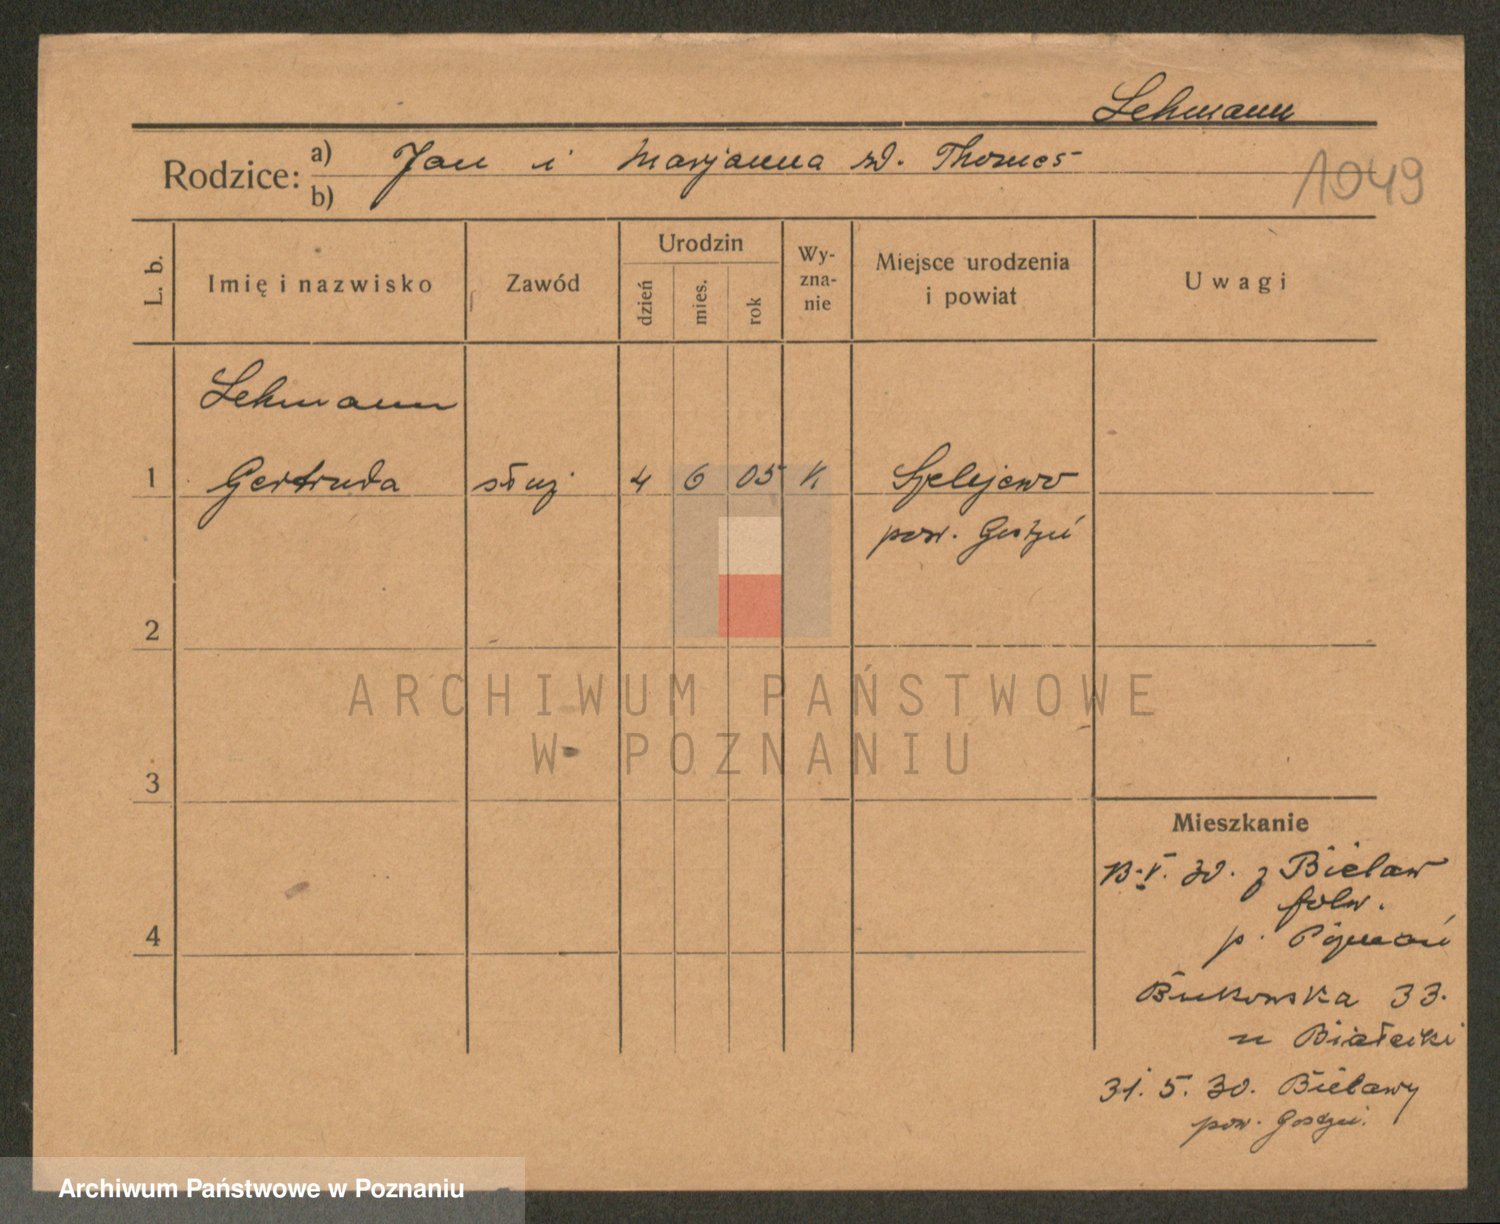 Lehmann
Rodzice: a) Jan i Marjanna zd. Thomas
b)
1049
L. b.
Imię i nazwisko
Zawód
Urodzin
dzień
mies.
rok
Wy-
zna-
nie
Miejsce urodzenia
i powiat
Uwagi
Lehmann
1 Gertruda służ 4 6 05 K Szelejewo
pow. Gostyń
2
3
4
Mieszkanie
13.V.30. z Bielaw
folw.
p.
Bukowska 33.
u Białecki
31.5.30. Bielawy
pow. Gostyń.
ARCHIWUM PAŃSTWOWE
W POZNANIU
Archiwum Państwowe w Poznaniu